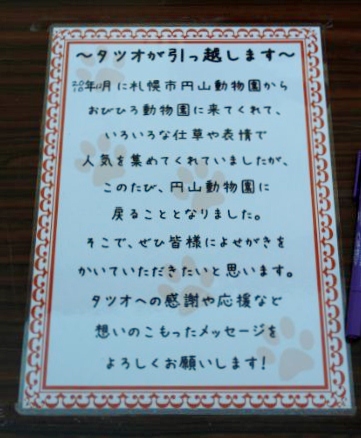 ～タツオが引っ越します～
2010年11月に札幌市円山動物園から
おびひろ動物園に来てくれて、
いろいろな仕草や表情で
人気を集めてくれていましたが、
このたび、円山動物園に
戻ることとなりました。
そこで、ぜひ皆様によせがきを
かいていただきたいと思います。
タツオへの感謝や応援など
想いのこもったメッセージを
よろしくお願いします！